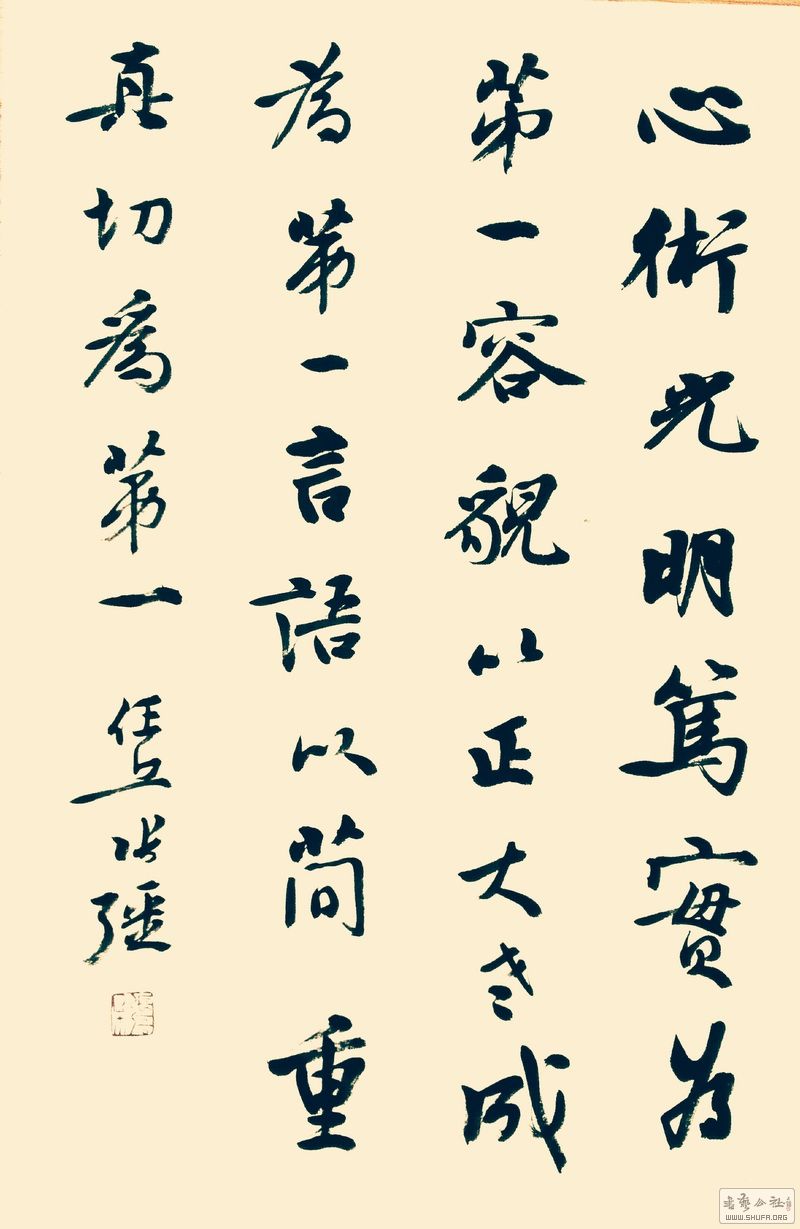 心術光明篤實為
第一容貌以正大老成
為第一言語以简重
真切為第一
書藝公社
WWW.SHUFA.ORG